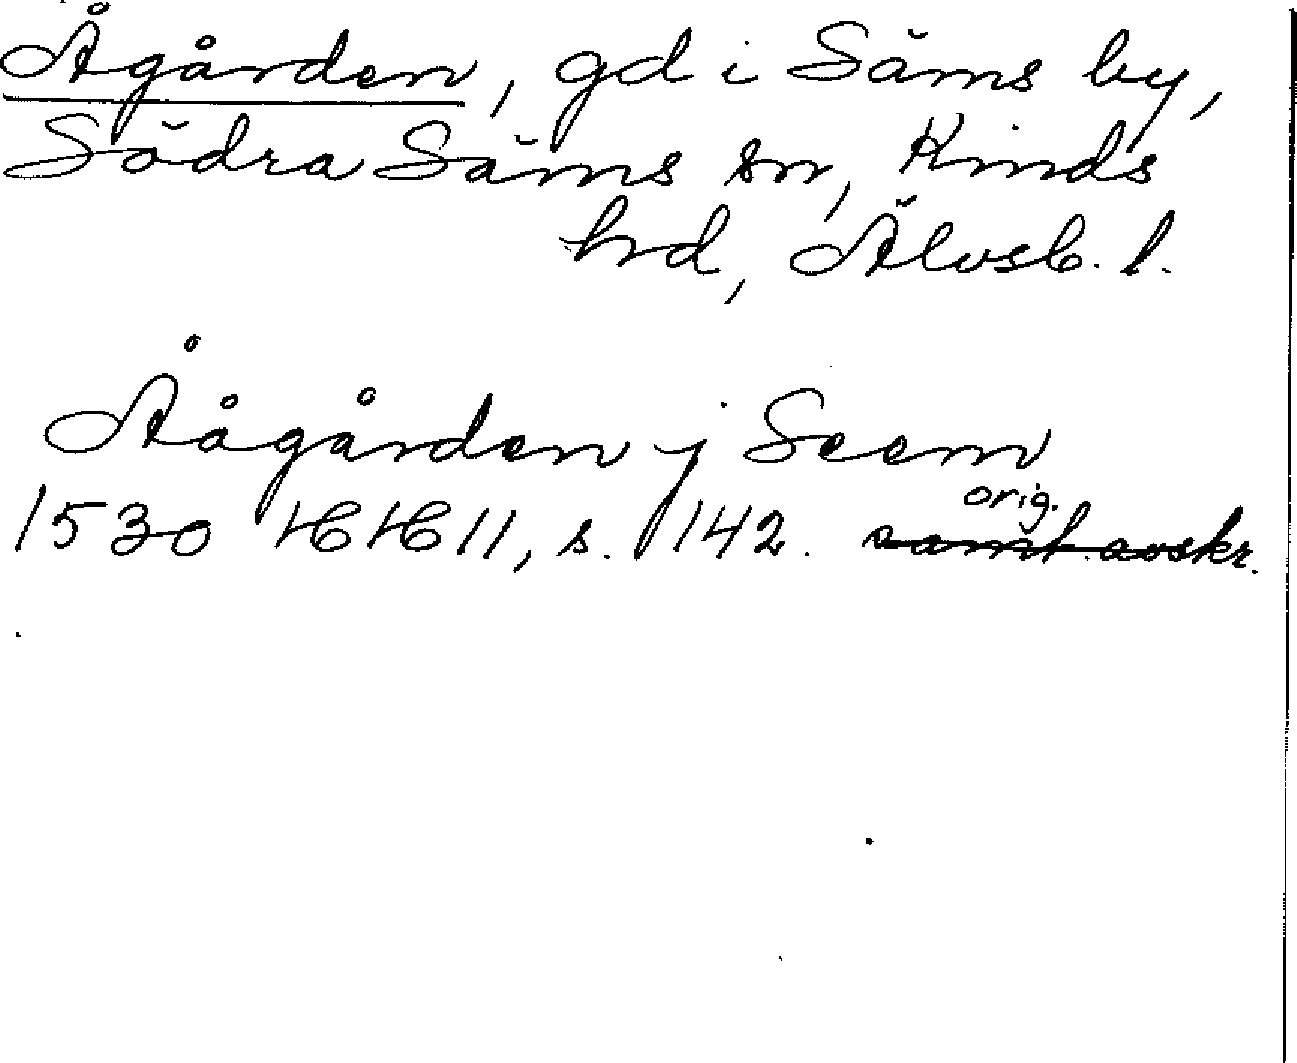 Ågården, gd i Säms by,
Södra Säms sn, Kinds
hd, Älvsb. l.
Åågården j Seem
1530 HH 11, s. 142. orig.
samt. avskr.